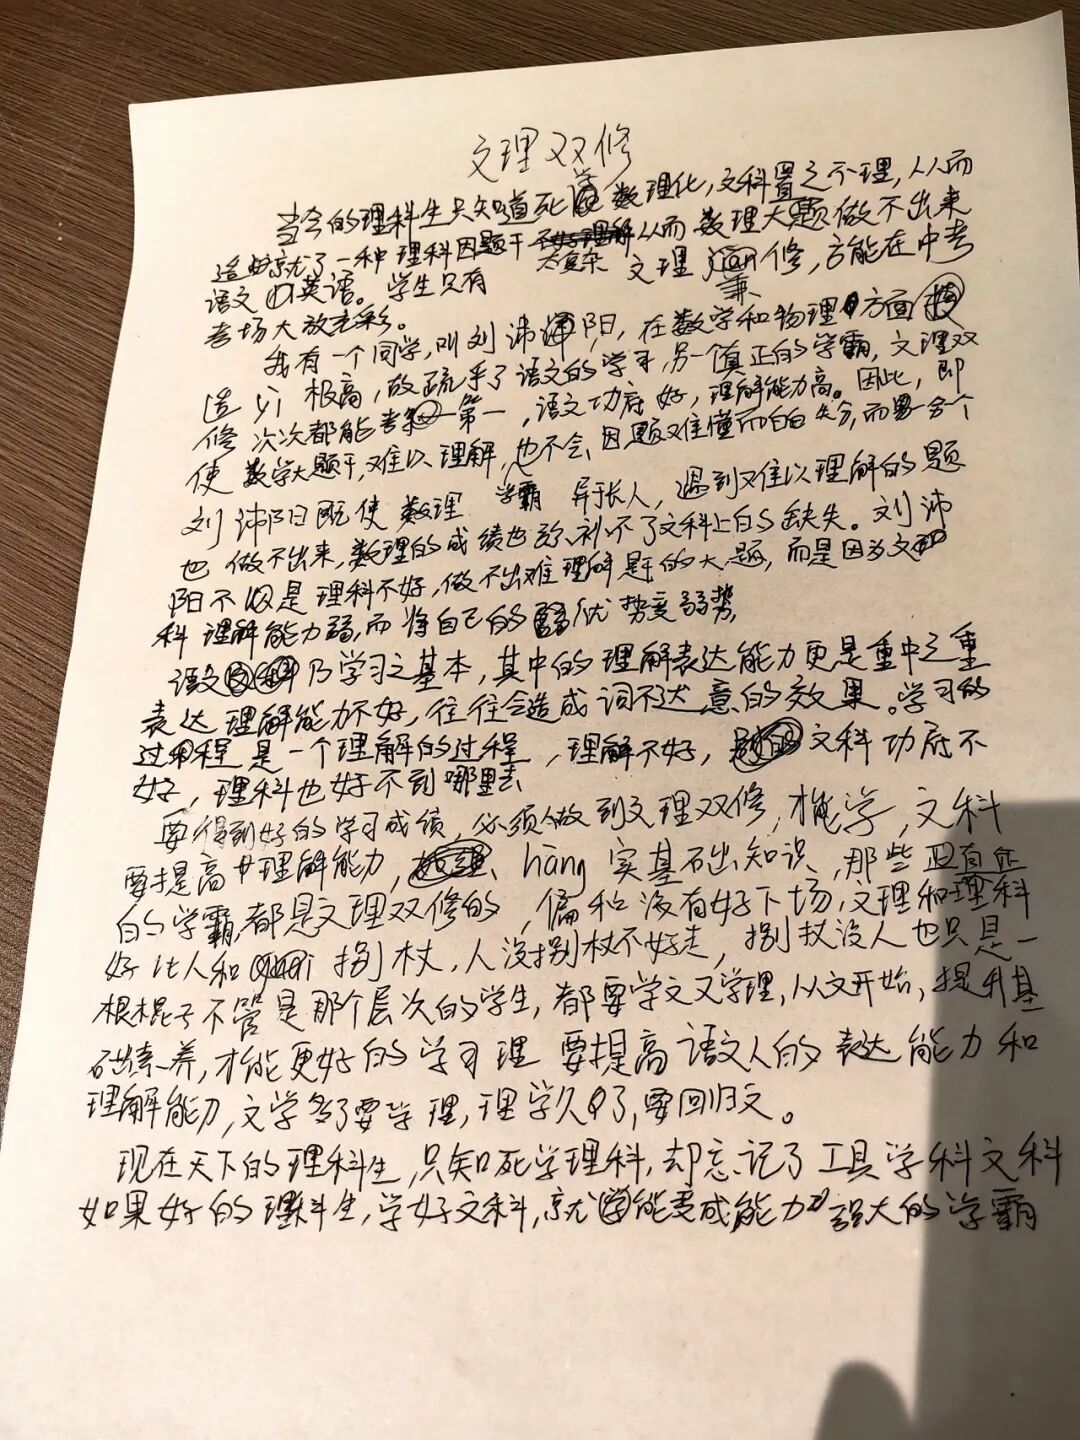 文理双修
当今的理科生只知道死学数理化,文科置之不理,从而
造就了一种理科因题干太复杂从而数理大题做不出来
语文 英语。学生只有 文理 jian 兼修,方能在中考
考场大放光彩。
我有一个同学,叫刘沛阳,在数学和物理方面
造yi极高,故疏乎了语文的学习,另一个真正的学霸,文理双
修次次都能考第一,语文功底好,理解能力高。因此,即
使数学大题干,难以理解,也不会因题难懂而白白失分,而另一个
刘沛阳既使数理学霸异于长人,遇到难以理解的题
也做不出来,数理的成绩也弥补不了文科上的缺失。刘沛
阳不仅是理科不好,做不出难理解题的大题,而是因为文
科理解能力弱,而将自己的优势变弱势,
语文乃学习之基本,其中的理解表达能力更是重中之重
表达理解能力不好,往往会造成词不达意的效果。学习的
过程是一个理解的过程,理解不好,文科功底不
好,理科也好不到哪里去
要得到好的学习成绩,必须做到文理双修,才能学,文科
要提高理解能力,hāng实基础知识,那些真正
的学霸,都是文理双修的,偏科没有好下场,文理和理科
好比人和拐杖,人没拐杖不好走,拐杖没人也只是一
根棍子不管是那个层次的学生,都要学文又学理,从文开始,提升基
础素养,才能更好的学习理 要提高语文人的表达能力和
理解能力,文学多了要学理,理学久了,要回归文。
现在天下的理科生,只知死学理科,却忘记了工具学科文科
如果好的理科生,学好文科,就能变成能力强大的学霸